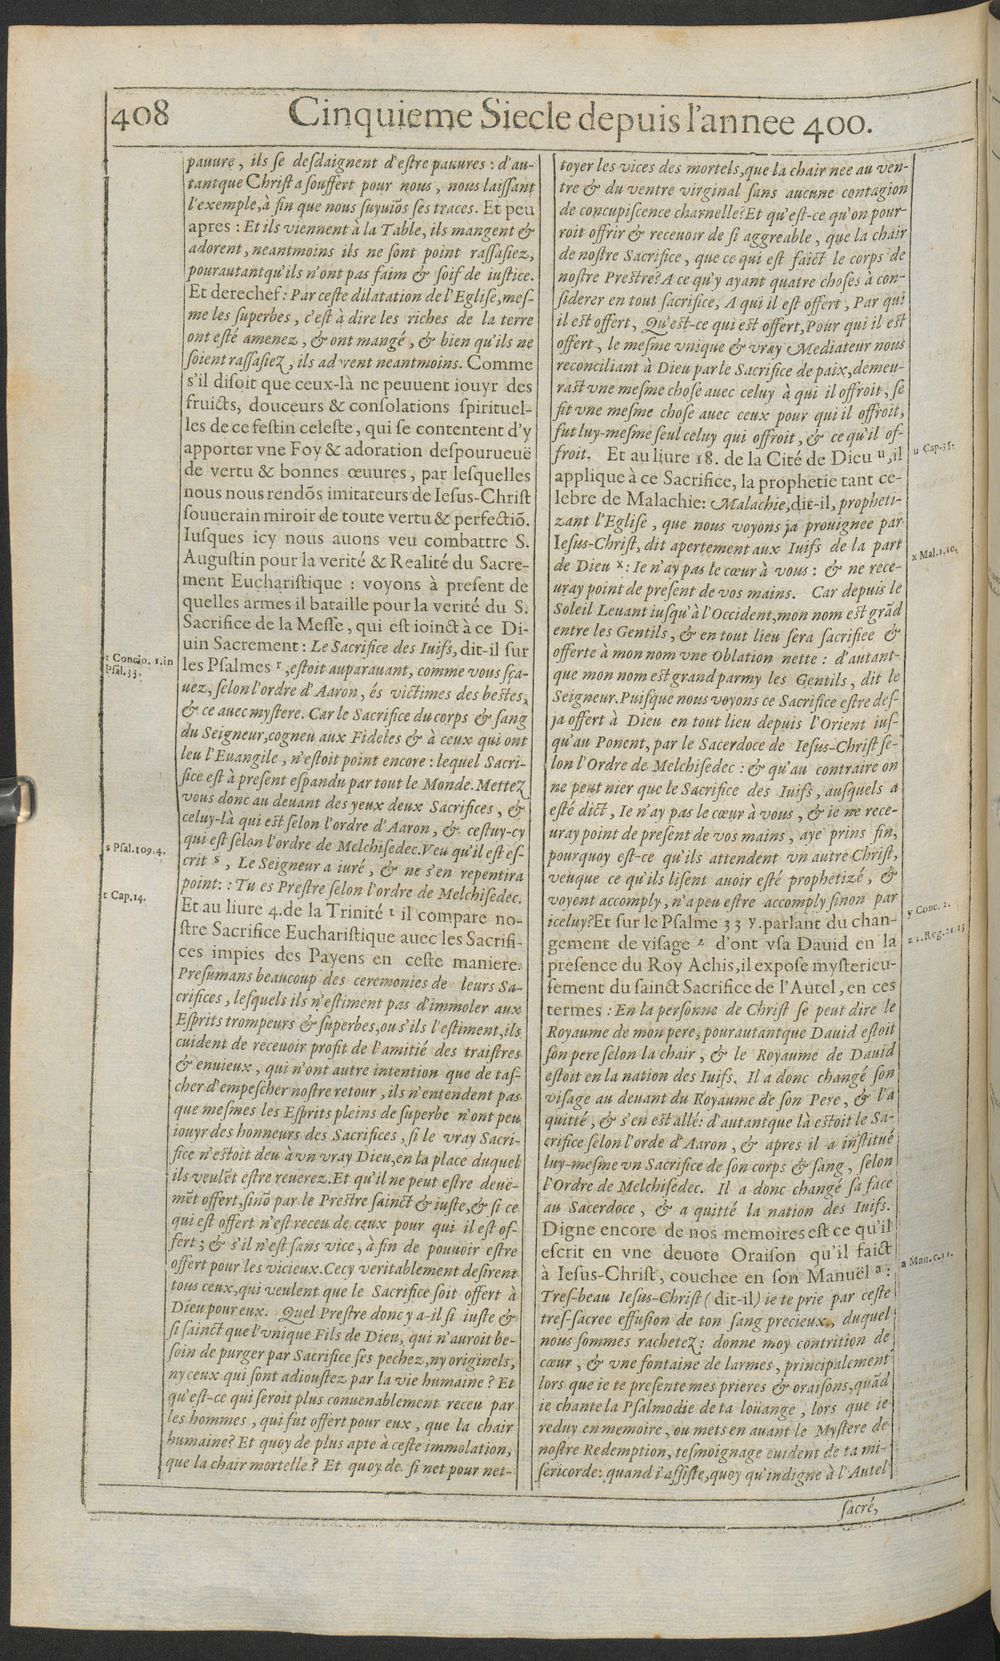 408
Cinquieme Siecle depuis l'annee 400.
pauure, ils se desdaignent d'estre pauures : d'au-
tant que Christ a souffert pour nous, nous laissant
l'exemple, à fin que nous suyuiõs ses traces. Et peu
apres : Et ils viennent à la Table, ils mangent &
adorent, neantmoins ils ne sont point rassasiez,
pourautant qu'ils n'ont pas faim & soif de iustice.
Et derechef : Par ceste dilatation de l'Eglise, mes-
me les superbes, c'est à dire les riches de la terre
ont esté amenez, & ont mangé, & bien qu'ils ne
soient rassasiez, ils adorent neantmoins. Comme
s'il disoit que ceux-là ne peuuent iouyr des
fruicts, douceurs & consolations spirituel-
les de ce festin celeste, qui se contentent d'y
apporter vne Foy & adoration despourueuë
de vertu & bonnes œuures, par lesquelles
nous nous rendõs imitateurs de Iesus-Christ
souuerain miroir de toute vertu & perfectiõ.
Iusques icy nous auons veu combattre S.
Augustin pour la verité & Realité du Sacre-
ment Eucharistique : voyons à present de
quelles armes il bataille pour la verité du S.
Sacrifice de la Messe, qui est ioinct à ce Di-
uin Sacrement : Le Sacrifice des Iuifs, dit-il sur
r Concio. 1. in
Psal. 33.
les Psalmes r, estoit auparauant, comme vous sça-
uez, selon l'ordre d'Aaron, és victimes des bestes,
& ce auec mystere. Car le Sacrifice du corps & sang
du Seigneur, cogneu aux Fideles & à ceux qui ont
leu l'Euangile, n'estoit point encore : lequel Sacri-
fice est à present espandu par tout le Monde. Mettez
vous donc au deuant des yeux deux Sacrifices, &
celuy-là qui est selon l'ordre d'Aaron, & cestuy-cy
qui est selon l'ordre de Melchisedec. Veu qu'il est es-
s Psal. 109. 4.
crit s, Le Seigneur a iuré, & ne s'en repentira
point : Tu es Prestre selon l'ordre de Melchisedec.
t Cap. 14.
Et au liure 4. de la Trinité t il compare no-
stre Sacrifice Eucharistique auec les Sacrifi-
ces impies des Payens en ceste maniere.
Presumans beaucoup des ceremonies de leurs Sa-
crifices, lesquels ils n'estiment pas d'immoler aux
Esprits trompeurs & superbes, ou s'ils l'estiment, ils
cuident de receuoir profit de l'amitié des traistres
& enuieux, qui n'ont autre intention que de tas-
cher d'empescher nostre retour, ils n'entendent pas
que mesmes les Esprits pleins de superbe n'ont peu
iouyr des honneurs des Sacrifices, si le vray Sacri-
fice n'estoit deu à vn vray Dieu, en la place duquel
ils veulẽt estre reuerez. Et qu'il ne peut estre deuë-
mẽt offert, sinõ par le Prestre sainct & iuste, & si ce
qui est offert n'est receu de ceux pour qui il est of-
fert ; & s'il n'est sans vice, à fin de pouuoir estre
offert pour les vicieux. Cecy veritablement desirent
tous ceux, qui veulent que le Sacrifice soit offert à
Dieu pour eux. Quel Prestre donc y a-il si iuste &
si sainct que l'vnique Fils de Dieu, qui n'auroit be-
soin de purger par Sacrifice ses pechez, ny originels,
ny ceux qui sont adioustez par la vie humaine ? Et
qu'est-ce qui seroit plus conuenablement receu par
les hommes, qui fut offert pour eux, que la chair
humaine ? Et quoy de plus apte à ceste immolation,
que la chair mortelle ? Et quoy de si net pour net-
toyer les vices des mortels, que la chair nee au ven-
tre & du ventre virginal sans aucune contagion
de concupiscence charnelle ? Et qu'est-ce qu'on pour-
roit offrir & receuoir de si aggreable, que la chair
de nostre Sacrifice, que ce qui est faict le corps de
nostre Prestre ? A ce qu'y ayant quatre choses à con-
siderer en tout sacrifice, A qui il est offert, Par qui
il est offert, Qu'est-ce qui est offert, Pour qui il est
offert, le mesme vnique & vray Mediateur nous
reconciliant à Dieu par le Sacrifice de paix, demeu-
rast vne mesme chose auec celuy à qui il offroit, se
fit vne mesme chose auec ceux pour qui il offroit,
fut luy-mesme seul celuy qui offroit, & ce qu'il of-
froit. Et au liure 18. de la Cité de Dieu u, il
u Cap. 35.
applique à ce Sacrifice, la prophetie tant ce-
lebre de Malachie : Malachie, dit-il, propheti-
zant l'Eglise, que nous voyons ja prouignee par
Iesus-Christ, dit apertement aux Iuifs de la part
x Mal. 1. 10.
de Dieu x : Ie n'ay pas le cœur à vous : & ne rece-
uray point de present de vos mains. Car depuis le
Soleil Leuant iusqu'à l'Occident, mon nom est grãd
entre les Gentils, & en tout lieu sera sacrifiee &
offerte à mon nom vne Oblation nette : d'autant-
que mon nom est grand parmy les Gentils, dit le
Seigneur. Puisque nous voyons ce Sacrifice estre des-
ja offert à Dieu en tout lieu depuis l'Orient ius-
qu'au Ponent, par le Sacerdoce de Iesus-Christ se-
lon l'Ordre de Melchisedec : & qu'au contraire on
ne peut nier que le Sacrifice des Iuifs, ausquels a
esté dict, Ie n'ay pas le cœur à vous, & ie ne rece-
uray point de present de vos mains, aye prins fin,
pourquoy est-ce qu'ils attendent vn autre Christ,
veuque ce qu'ils lisent auoir esté prophetizé, &
voyent accomply, n'a peu estre accomply sinon par
y Conc. 1.
iceluy ? Et sur le Psalme 33 y. parlant du chan-
z 1. Reg. 21. 13
gement de visage z d'ont vsa Dauid en la
presence du Roy Achis, il expose mysterieu-
sement du sainct Sacrifice de l'Autel, en ces
termes : En la personne de Christ se peut dire le
Royaume de mon pere, pourautant que Dauid estoit
son pere selon la chair, & le Royaume de Dauid
estoit en la nation des Iuifs. Il a donc changé son
visage au deuant du Royaume de son Pere, & l'a
quitté, & s'en est allé : d'autant que là estoit le Sa-
crifice selon l'orde d'Aaron, & apres il a institué
luy-mesme vn Sacrifice de son corps & sang, selon
l'Ordre de Melchisedec. Il a donc changé sa face
au Sacerdoce, & a quitté la nation des Iuifs.
Digne encore de nos memoires est ce qu'il
escrit en vne deuote Oraison qu'il faict
à Iesus-Christ, couchee en son Manuël a :
a Man. c. 11.
Tres-beau Iesus-Christ (dit-il) ie te prie par ceste
tres-sacree effusion de ton sang precieux, duquel
nous sommes rachetez : donne moy contrition de
cœur, & vne fontaine de larmes, principalement
lors que ie te presente mes prieres & oraisons, quãd
ie chante la Psalmodie de ta loüange, lors que ie
reduy en memoire, ou mets en auant le Mystere de
nostre Redemption, tesmoignage euident de ta mi-
sericorde : quand i'assiste, quoy qu'indigne à l'Autel
sacré,